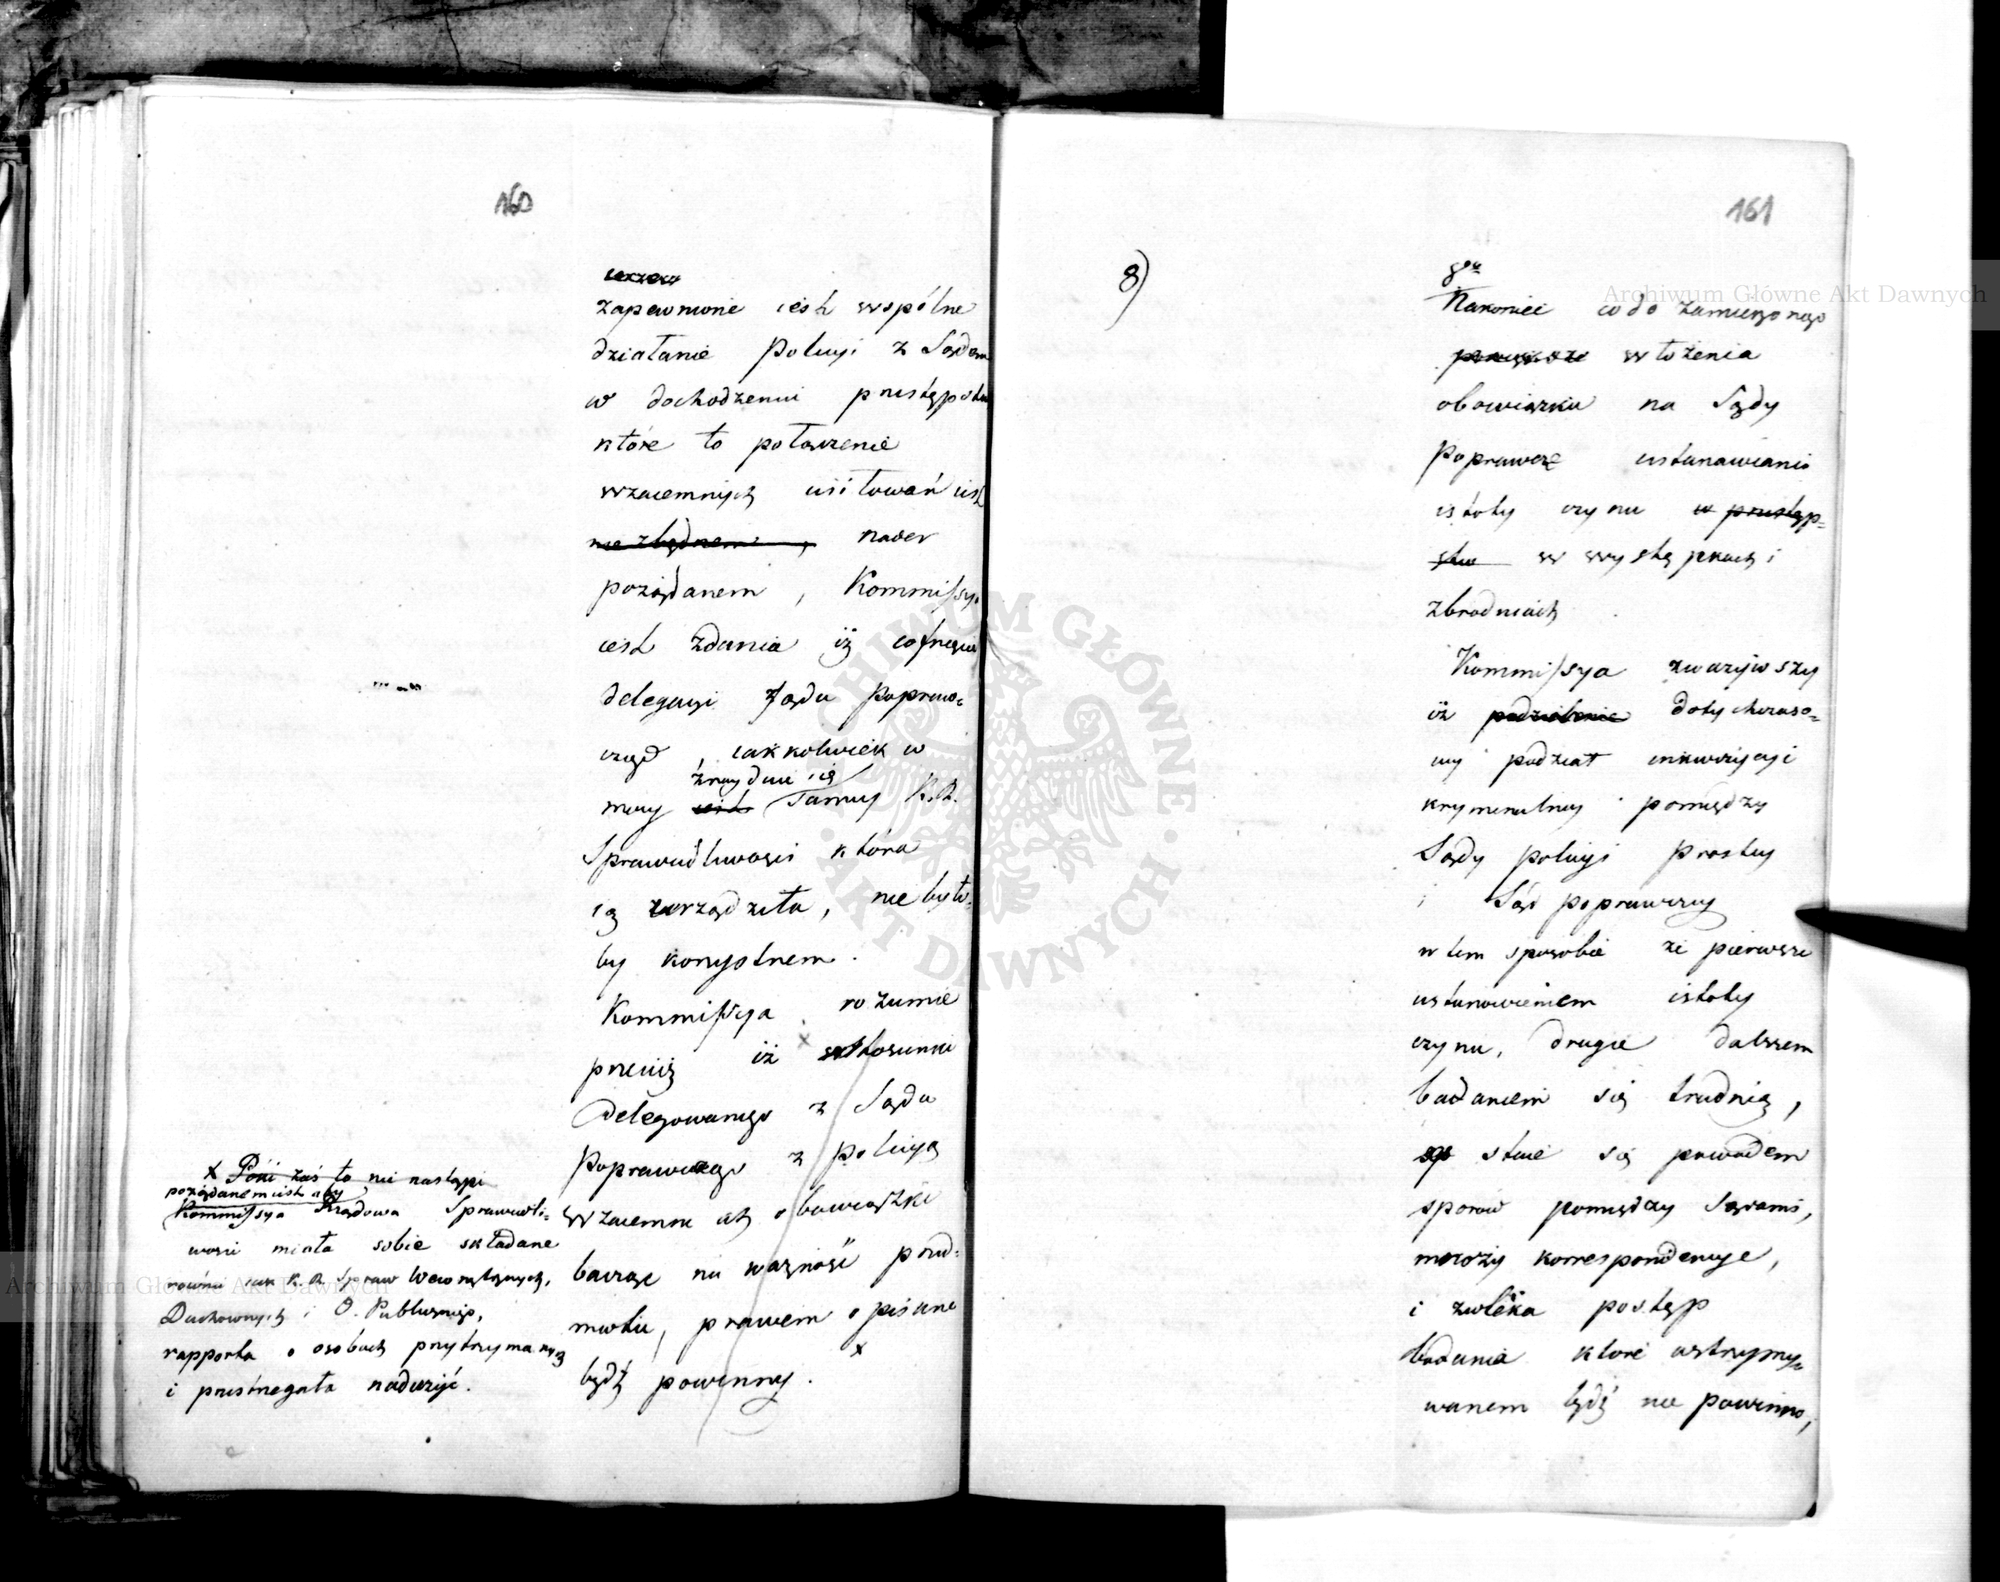 160
zapewnione iest wspólne
działanie Policyi z Sądem
w dochodzeniu przestępstw
które to połączenie
wzaiemnych usiłowań iest
niezbędnem, nader
pożądanem, Kommissya
iest zdania iż cofnięcie
delegacyi Sądu Popraw-
czego, iakkolwiek w
znayduie się
mocy iest tamuy K. R.
Sprawiedliwości która
ią zarządziła, nie było-
by korzystnem.
Kommissya rozumie
przeciż iż stosunki
Delegowanego z Sądu
Poprawczego z Policyą
wzaiemne ich obowiązki
bacząc na ważność przed-
miotu, prawem opisane
x
bydź powinny.
x Póki zaś to nie nastąpi
pożądanem iest aby
Kommissya Rządowa Sprawiedli-
wości miała sobie składane
równie iak K. R. Spraw Wewnętrznych,
Duchownych i O. Publicznego,
rapporta o osobach przytrzymanych
i przestrzegała nadużyć.
161
8)
8vo
Nakoniec co do zamierzonego
włożenia
obowiązku na Sądy
Poprawcze ustanawiania
istoty czynu w przestęp-
stw w występkach i
zbrodniach
Kommissya zważywszy
iż podzielenie dotychczaso-
wy podział inkwizycyi
kryminalney pomiędzy
Sądy policyi prostey
i Sąd poprawczy
w tem sposobie że pierwsze
ustanowieniem istoty
czynu, drugie dalszem
badaniem się trudnią,
staie się powodem
sporów pomiędzy Sądami,
mnoży korrespondencye,
i zwleka postęp
badania które wstrzymy-
wanem bydź nie powinno,
Archiwum Główne Akt Dawnych
Archiwum Główne Akt Dawnych
ARCHIWUM GŁÓWNE · AKT DAWNYCH ·